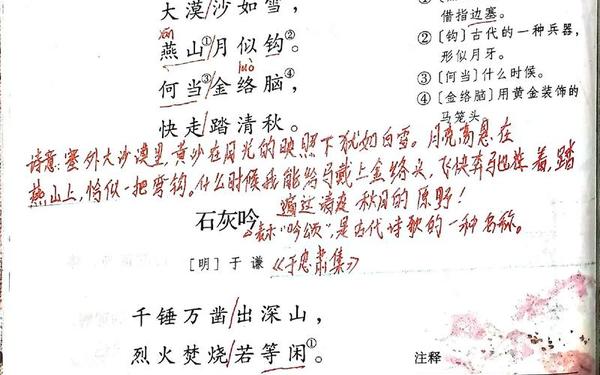 大漠/沙如雪，
yān
燕山①/月似钩②。
luò
何当③/金络脑④，
快走/踏清秋。
借指边塞。
②[钩]古代的一种兵器，
形似月牙。
③[何当]什么时候。
④[金络脑]用黄金装饰的
马笼头
诗意：塞外大沙漠里，黄沙在月光的映照下犹如白雪。月亮高悬在
燕山上，恰似一把弯钩。什么时候我能给马戴上金络头，飞快奔驰着，踏
遍这清爽秋月的原野！
石灰吟
"吟颂"，是古代诗歌的一种名称。
[明]于谦《于忠肃集》
千锤万凿/出深山，
烈火焚烧/若等闲①。
注释